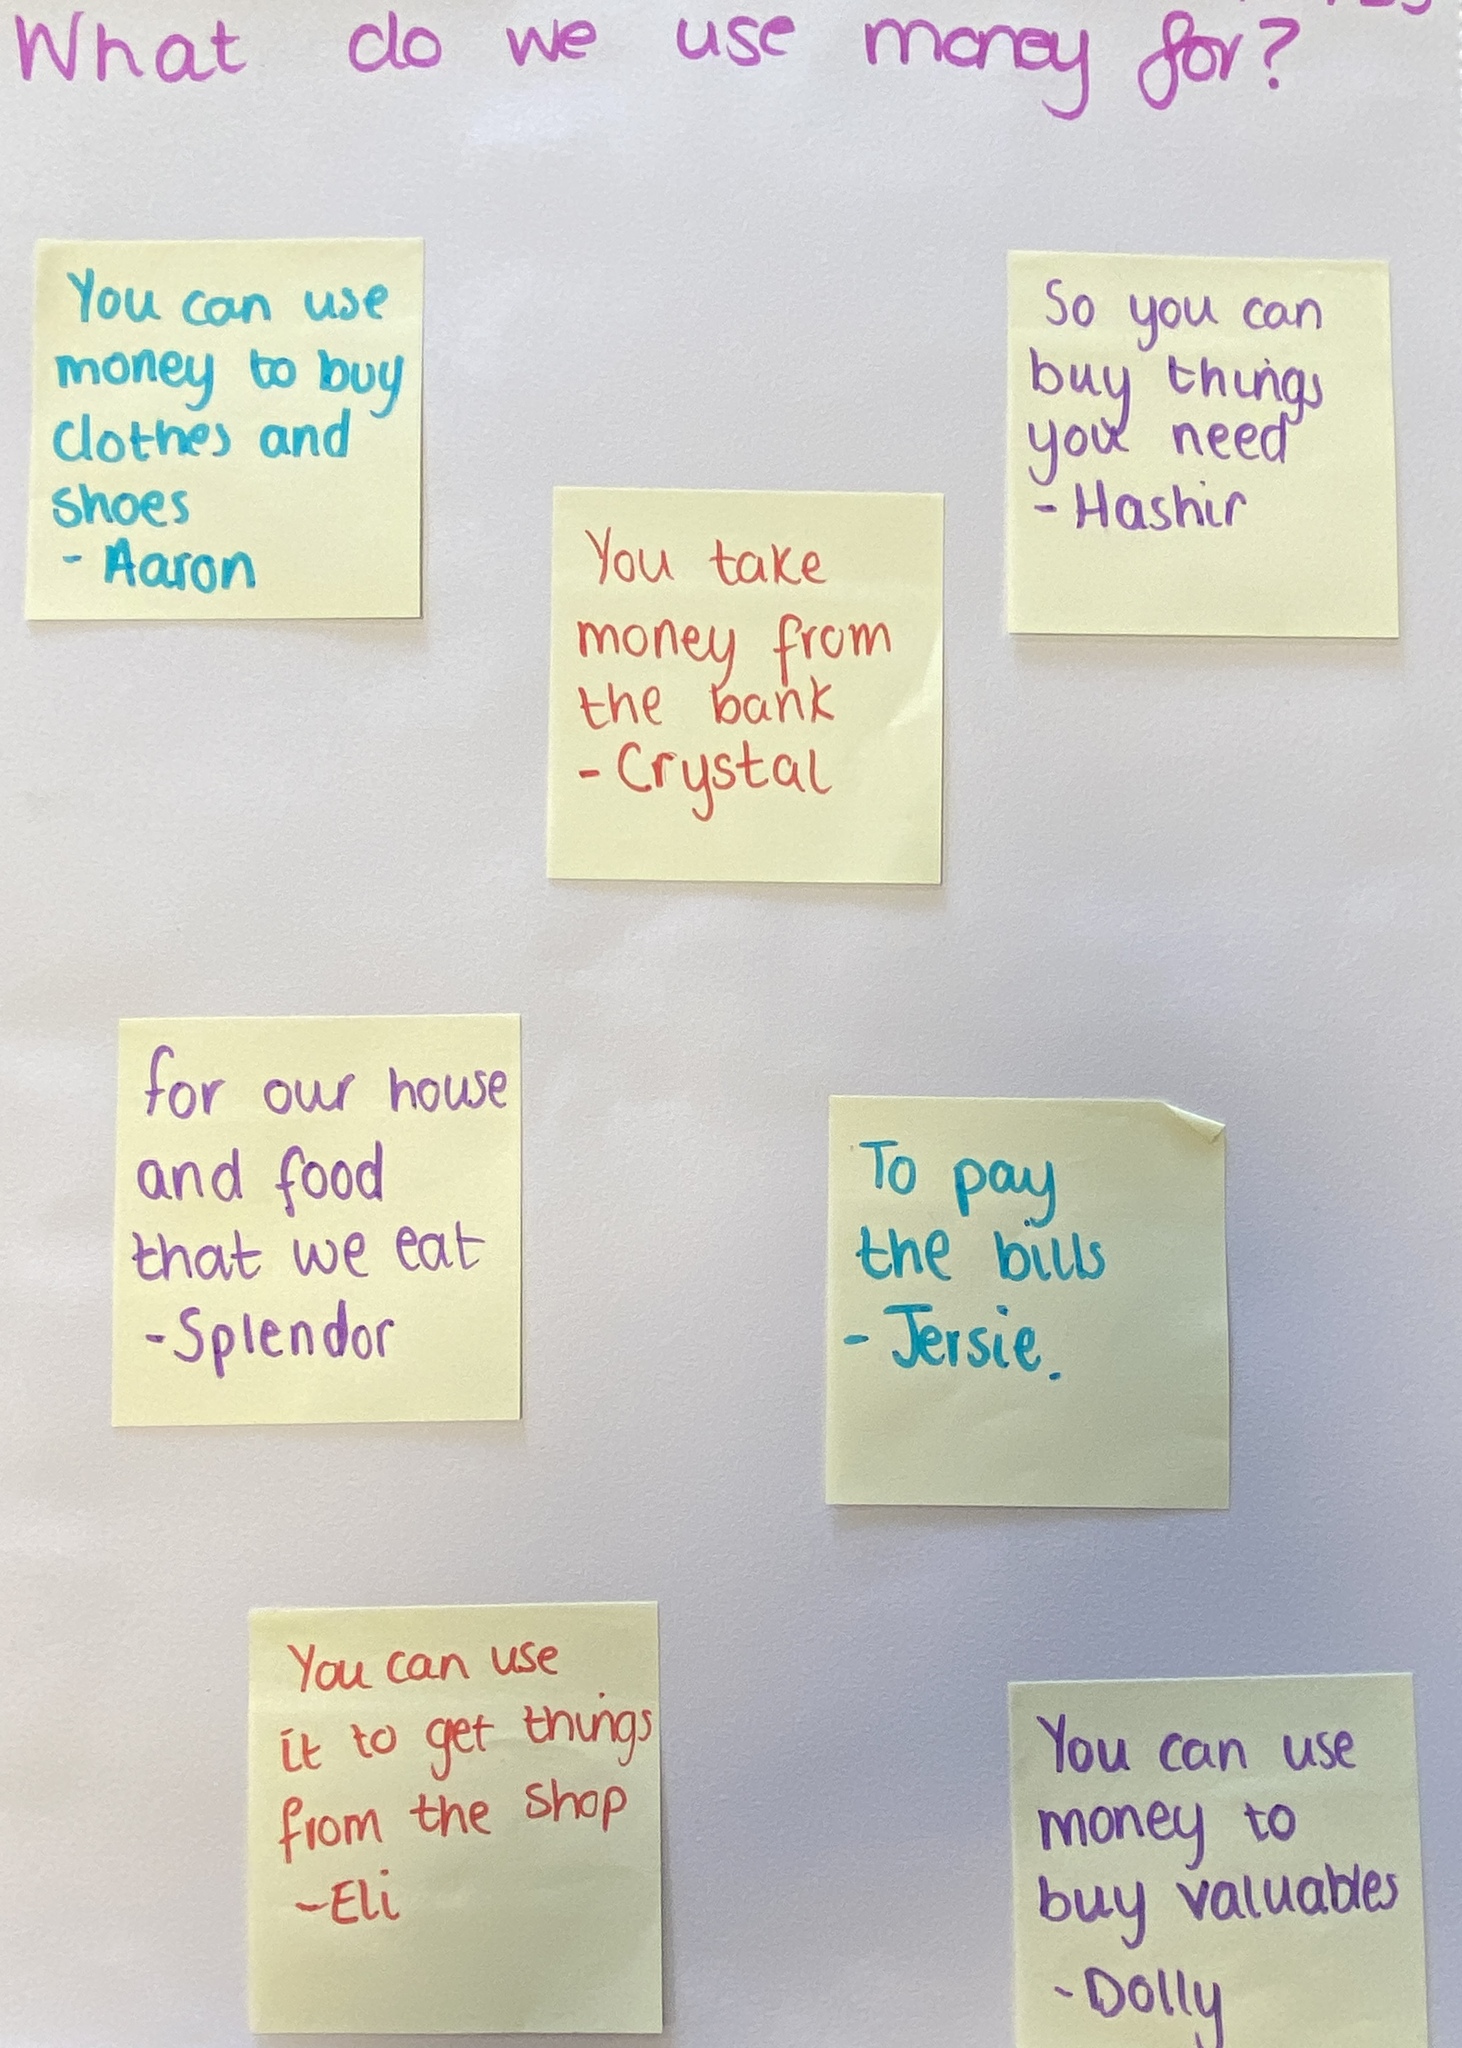 What do we use money for?
You can use
money to buy
clothes and
shoes
- Aaron
So you can
buy things
you need
- Hashir
You take
money from
the bank
- Crystal
for our house
and food
that we eat
- Splendor
To pay
the bills
- Jersie.
You can use
it to get things
from the shop
- Eli
You can use
money to
buy valuables
- Dolly